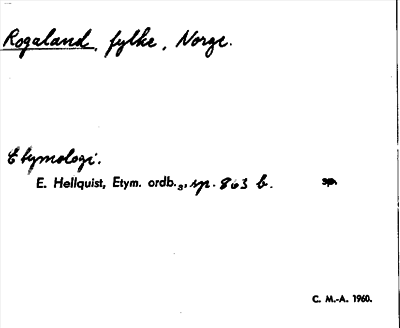 Rogaland, fylke, Norge.
Etymologi.
E. Hellquist, Etym. ordb.3, sp. 863 b. sp.
C. M.-A. 1960.